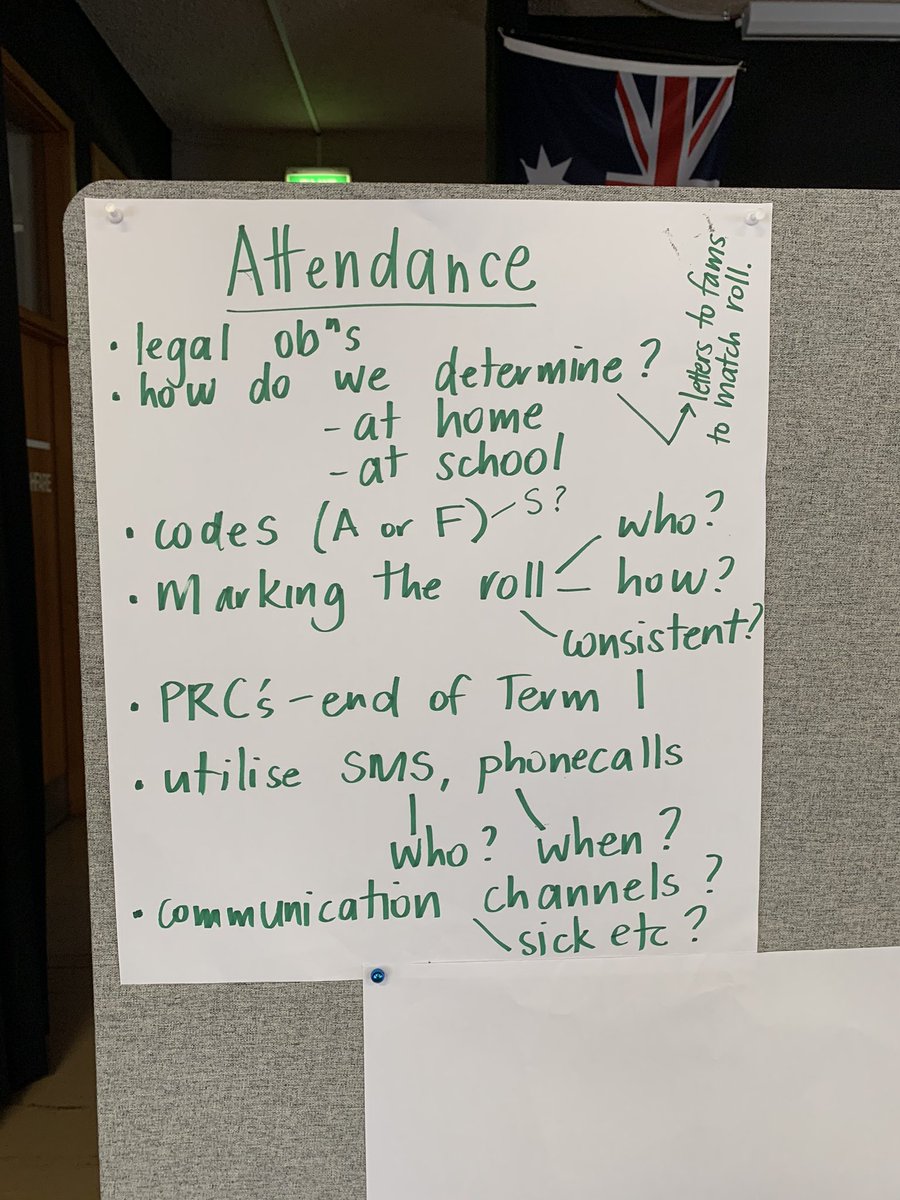 Attendance
• legal obⁿs
• how do we determine?
- at home
- at school
→ letters to fams
to match roll.
• codes (A or F) - S?
• Marking the roll - who?
- how?
consistent?
• PRC's - end of Term 1
• utilise SMS, phonecalls
who? when?
• communication channels?
sick etc?